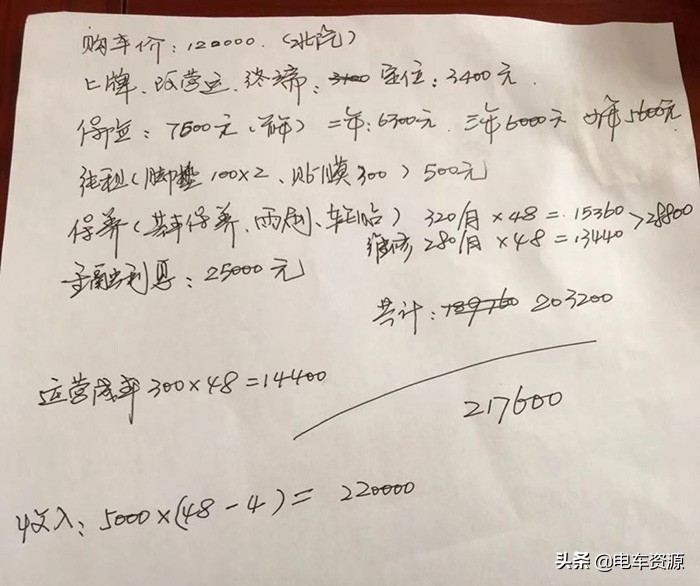 购车价：120000.（北汽）
上牌、改营运、终端：3100 定位：3400元.
保险：7500元（首年）二年：6300元. 三年6000元 四年5600元
纯利（脚垫100×2、贴膜300）500元
保养（基本保养、雨刮、轮胎）320/月×48=15360>28800
维修280/月×48=13440
金融利息：25000元
共计：189760 203200
运营成本300×48=14400
217600
收入：5000×(48-4)=220000
头条 @电车资源